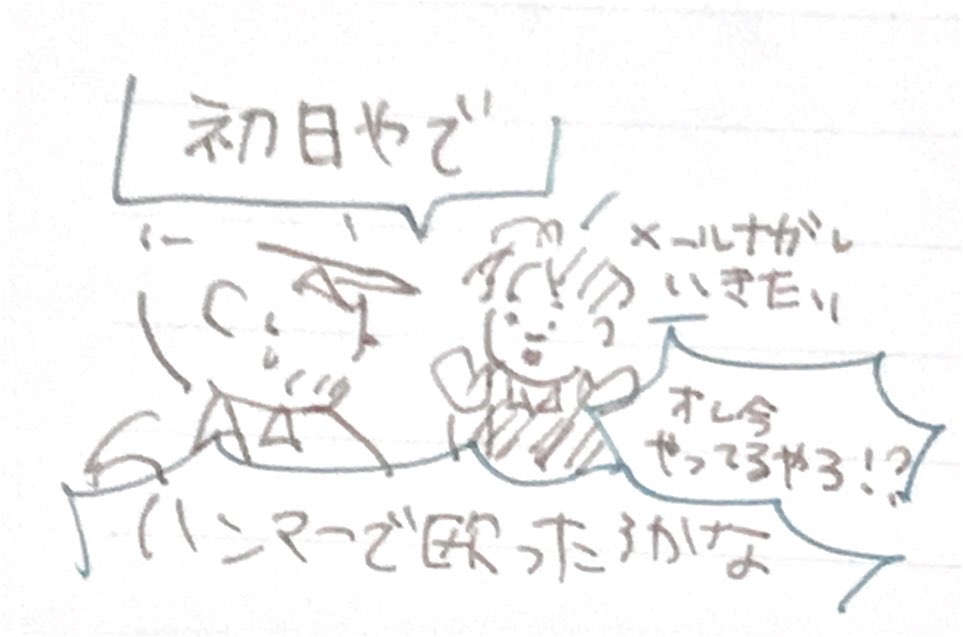 初日やで
メールナガし
いきたい
オレ今
やってるやろ!?
ハンマーで殴ったろかな